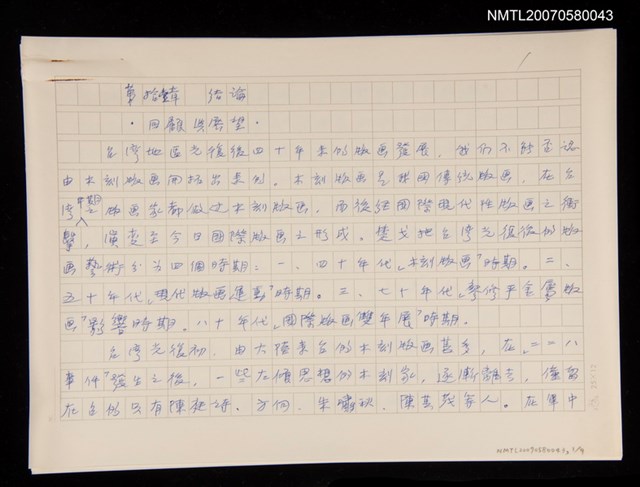 NMTL20070580043
1
第拾肆章 結論
·回顧與展望·
台灣地區光復後四十年來的版画發展,我們不能否認
由木刻版画開拓出來的。木刻版画是我國傳統版画,在台
灣早期版画家都做过木刻版画,而後經國際現代性版画之衝
擊,演变至今日國際版画之形成。楚戈把台灣光復後的版
画藝術分为四個時期:一、四十年代"木刻版画"時期。二、
五十年代"現代版画運動"時期。三、七十年代"廖修平金屬版
画"影響時期。八十年代"國際版画雙年展"時期。
台灣光復初,由大陸來台的木刻版画甚多,在"二二八
事件"發生之後,一些左傾思想的木刻家,逐漸離去,僅留
在台的只有陳庭詩、方向、朱嘯秋、陳其茂等人。在軍中
NMTL20070580043, 1/9